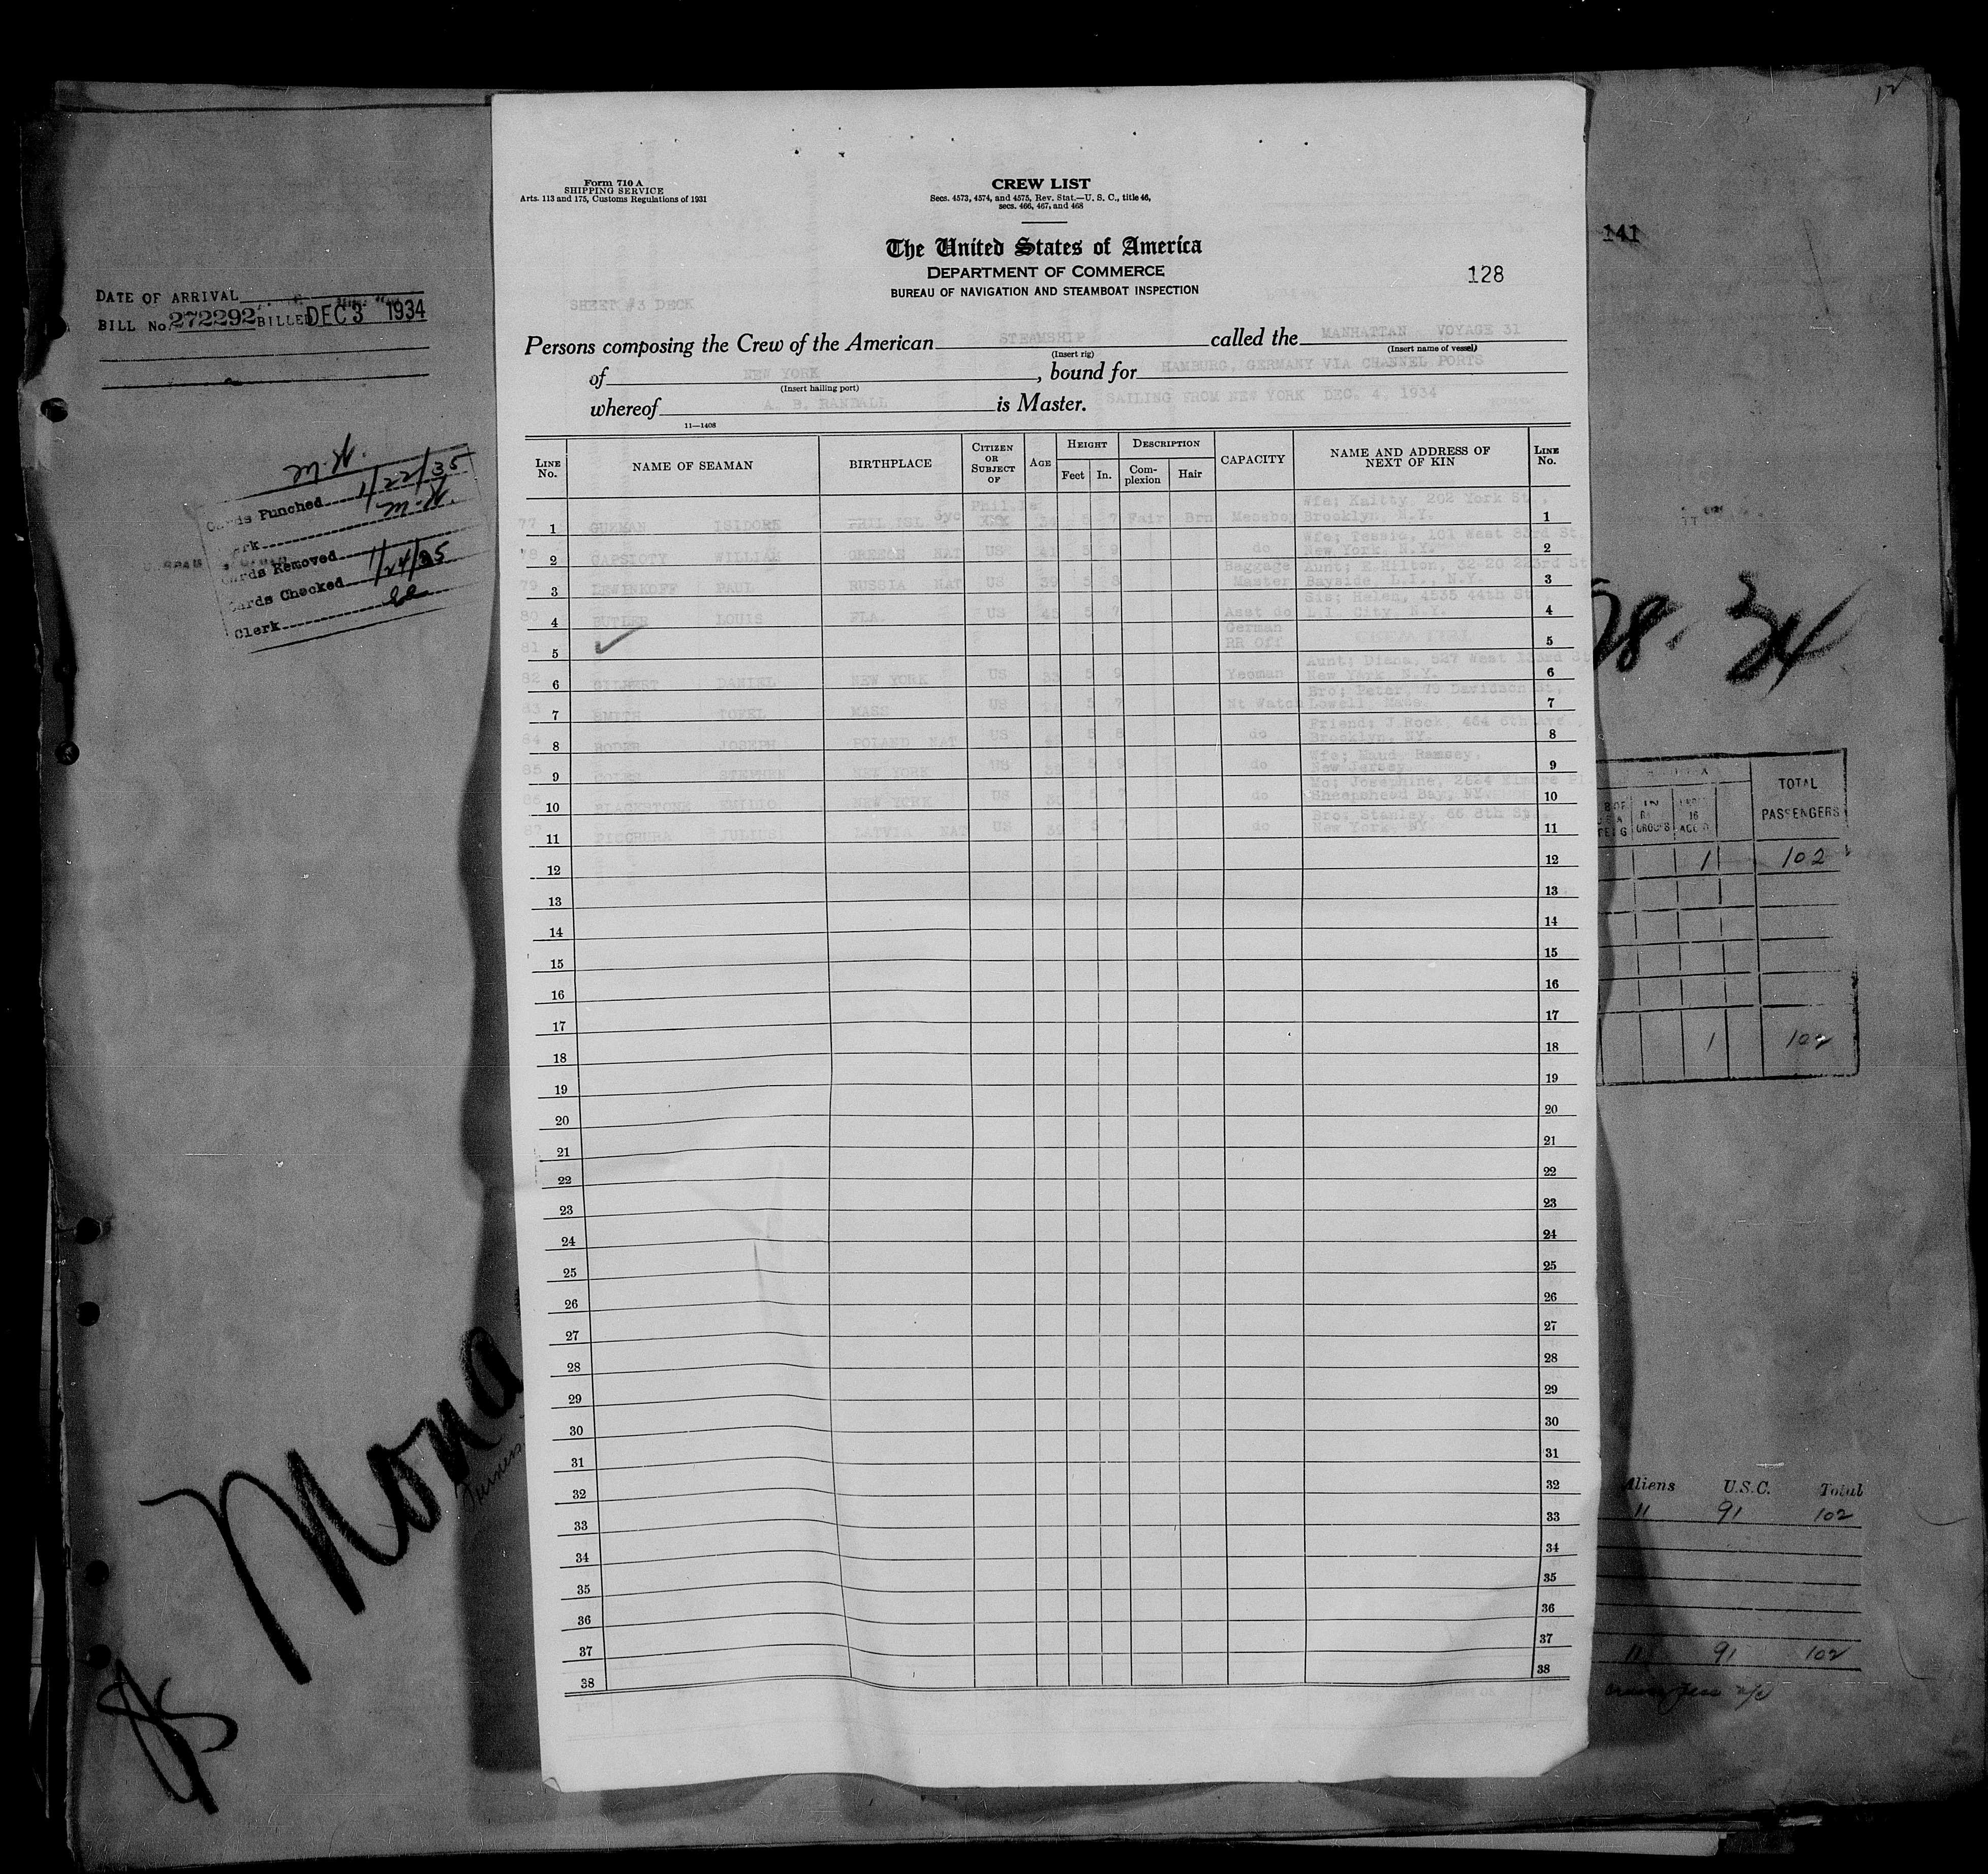 12
141
DATE OF ARRIVAL
BILL No. 272292 BILLED DEC 3 1934
M.K.
Cards Punched 11/22/35
M.K.
Cards Removed
Cards Checked 11/24/35
Clerk
Form 710 A
SHIPPING SERVICE
Arts. 113 and 175, Customs Regulations of 1931
CREW LIST
Secs. 4573, 4574, and 4575, Rev. Stat.—U. S. C., title 46,
secs. 466, 467, and 468
The United States of America
DEPARTMENT OF COMMERCE
BUREAU OF NAVIGATION AND STEAMBOAT INSPECTION
128
SHEET #3 DECK
Persons composing the Crew of the American STEAMSHIP called the MANHATTAN VOYAGE 31
(Insert rig) (Insert name of vessel)
of NEW YORK, bound for HAMBURG, GERMANY VIA CHANNEL PORTS
(Insert hailing port)
whereof A. B. RANDALL is Master. SAILING FROM NEW YORK DEC. 4, 1934
11—1408
LINE No. NAME OF SEAMAN BIRTHPLACE CITIZEN OR SUBJECT OF AGE HEIGHT Feet In. DESCRIPTION Complexion Hair CAPACITY NAME AND ADDRESS OF NEXT OF KIN LINE No.
77 1 GUZMAN ISIDORE PHIL ISL 34 5 7 Fair Brn Messboy Wfe; Kaitty, 202 York St., Brooklyn, N.Y. 1
78 2 CAPSIOTY WILLIAM GREECE NAT US 41 5 9 do Wfe; Tessie, 101 West 83rd St. New York, N.Y. 2
79 3 LEWINKOFF PAUL RUSSIA NAT US 39 5 8 Baggage Master Aunt; E.Hilton, 32-20 223rd St Bayside, L.I., N.Y. 3
80 4 BUTLER LOUIS FLA. US 45 5 7 Asst do Sis; Helen, 4535 44th St. L.I. City, N.Y. 4
81 5 German RR Off 5
82 6 GILBERT DANIEL NEW YORK US 33 5 9 Yeoman Aunt; Diana, 527 West New York N.Y. 6
83 7 TOFEL MASS US 5 7 Nt Watch Bro; Peter, 79 Davidson St, Lowell, Mass. 7
84 8 RODER JOSEPH POLAND NAT US 5 8 do Friend; J.Rock, 464 6th Ave. Brooklyn, NY. 8
85 9 COLES STEPHEN NEW YORK US 39 5 9 do Wfe; Maud, Ramsey, New Jersey 9
86 10 BLACKSTONE EMILIO NEW YORK US 5 7 do Mo; Josephine, 2624 Elmore Pl Sheepshead Bay, NY. 10
87 11 PICCHURA JULIUS LATVIA NAT US 39 5 7 do Bro; Stanley, 66 8th St. New York, NY. 11
12 12
13 13
14 14
15 15
16 16
17 17
18 18
19 19
20 20
21 21
22 22
23 23
24 24
25 25
26 26
27 27
28 28
29 29
30 30
31 31
32 32
33 33
34 34
35 35
36 36
37 37
38 38
28. 34
TOTAL PASSENGERS
IN GROUPS
16
1 102
1 102
Mona
Furness
Aliens U.S.C. Total
11 91 102
11 91 102